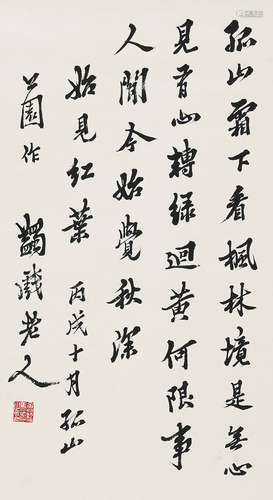 孤山霜下看楓林境是無心
見有心轉綠迴黃何限事
人間今始覺秋深
始見紅葉 丙戌十月孤山
公園作 蠲戲老人